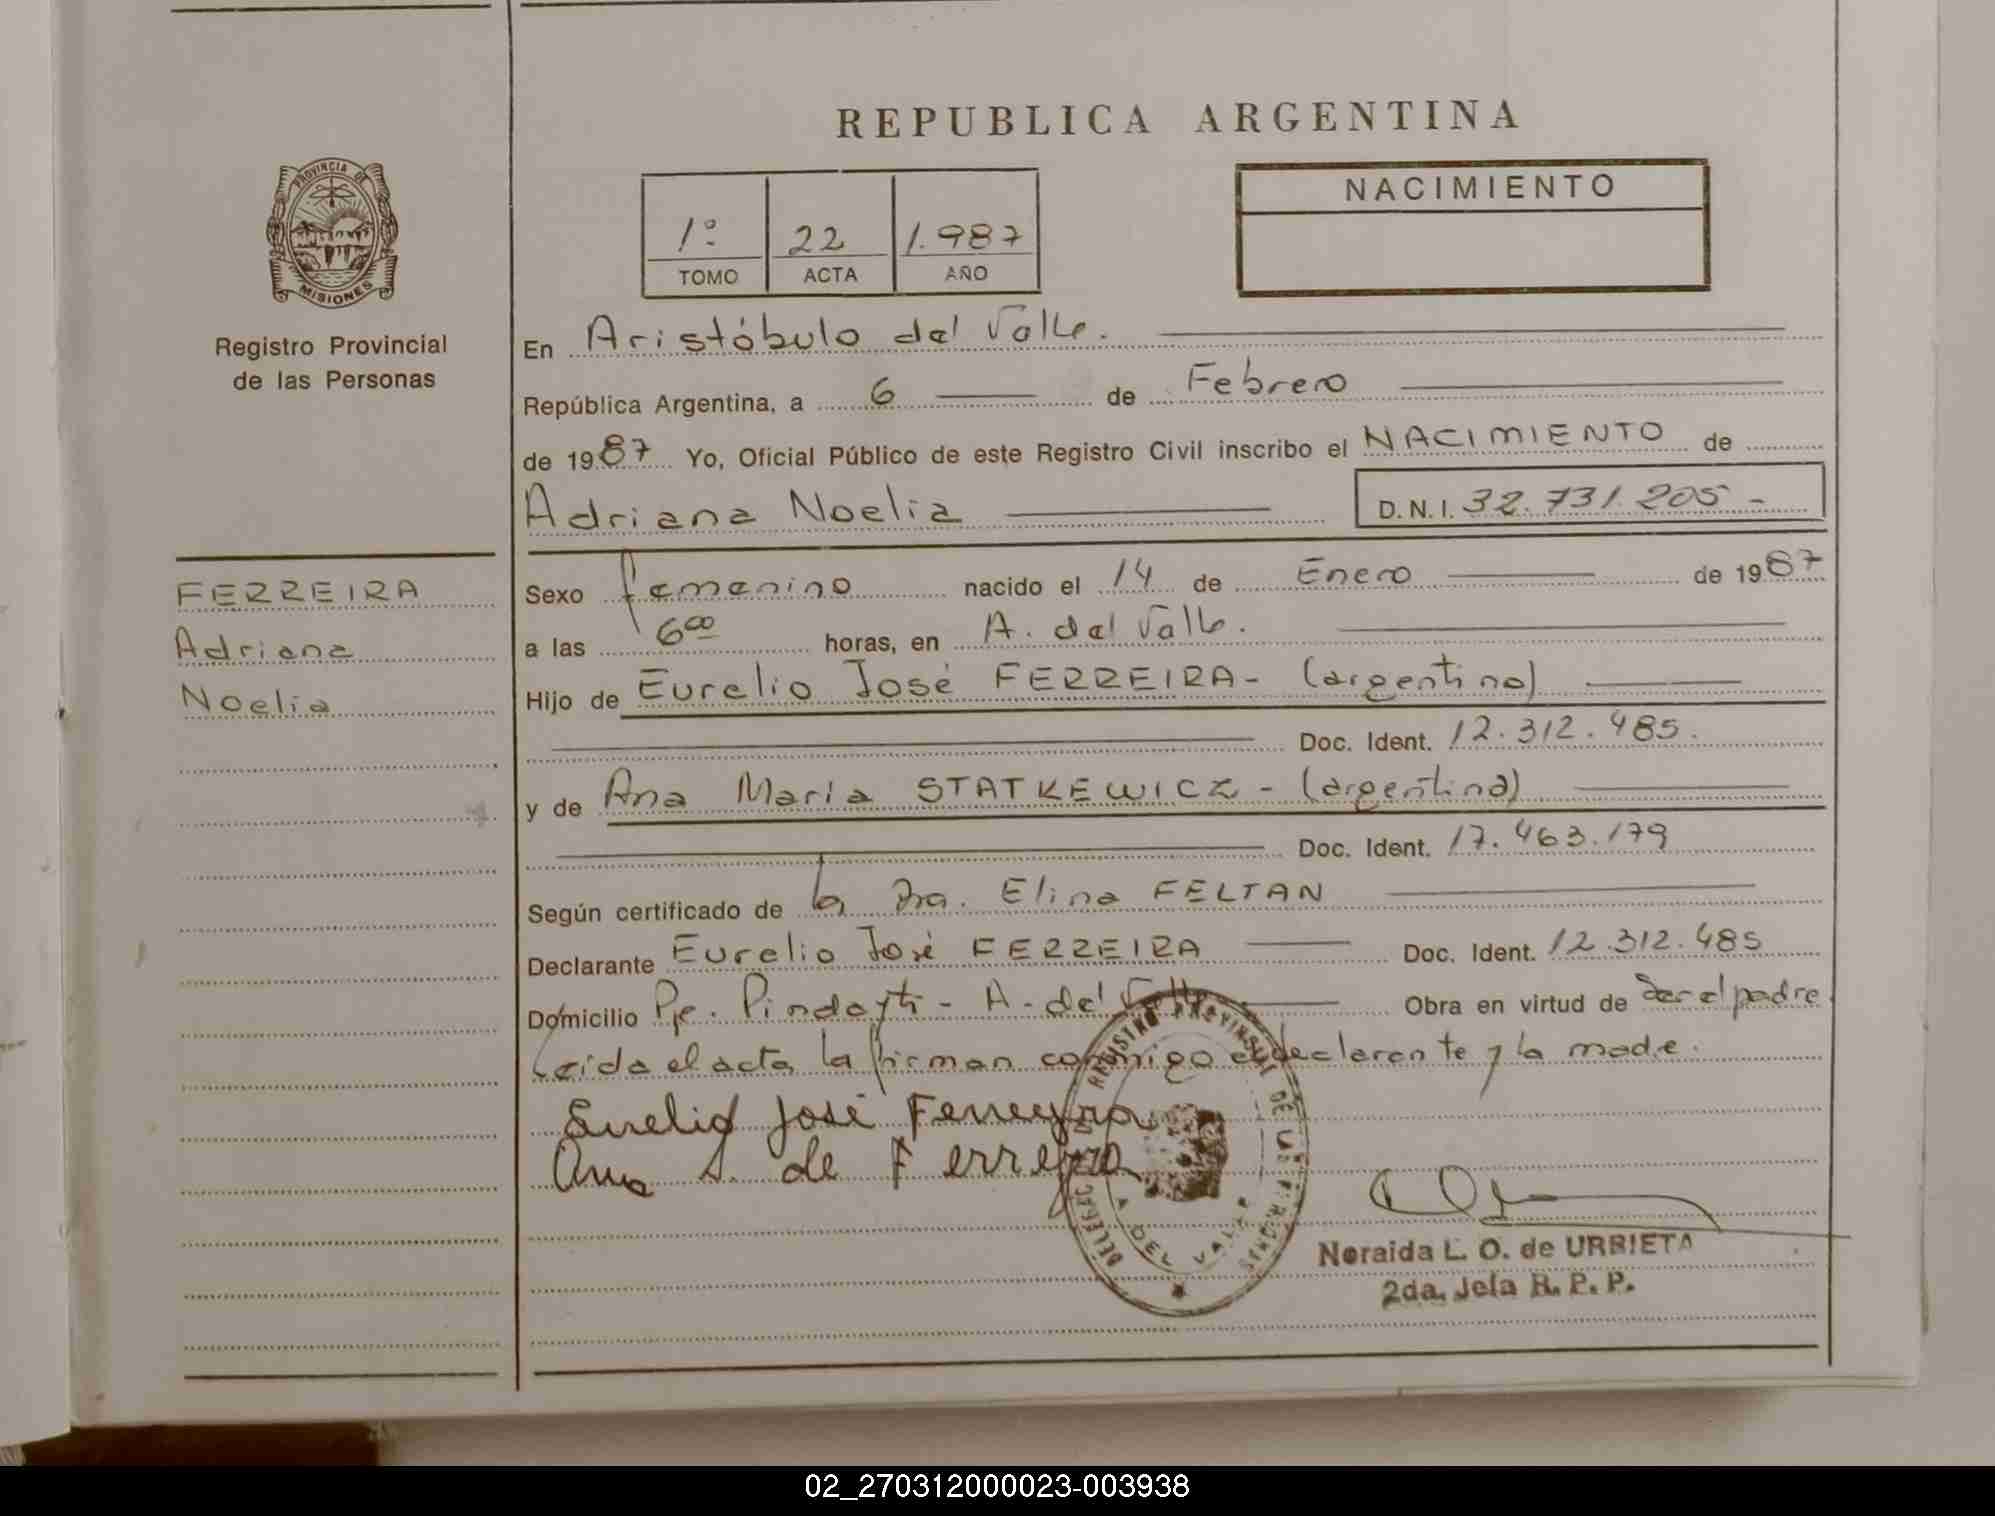 REPUBLICA ARGENTINA
PROVINCIA DE
MISIONES
Registro Provincial
de las Personas
1º 22 1.987
TOMO ACTA AÑO
NACIMIENTO
En Aristóbulo del Valle.
República Argentina, a 6 de Febrero
de 1987 Yo, Oficial Público de este Registro Civil inscribo el NACIMIENTO de
Adriana Noelia D.N.I. 32.731.205-
FERREIRA
Adriana
Noelia
Sexo femenino nacido el 14 de Enero de 1987
a las 6 00 horas, en A. del Valle.
Hijo de Eurelio José FERREIRA- (argentino)
Doc. Ident. 12.312.485.
y de Ana Maria STATKEWICZ - (argentina)
Doc. Ident. 17.463.179
Según certificado de la Dra. Elina FELTAN
Declarante Eurelio José FERREIRA Doc. Ident. 12.312.485
Domicilio Pje. Pindayti - A. del Valle Obra en virtud de ser el padre
Leida el acta la firman conmigo el declarante y la madre.
Eurelio José Ferreyra
Ana S. de Ferreyra
REGISTRO PROVINCIAL DE LAS PERSONAS
A DEL VALLE
Noraida L. O. de URRIETA
2da. Jefa R. P. P.
02_270312000023-003938